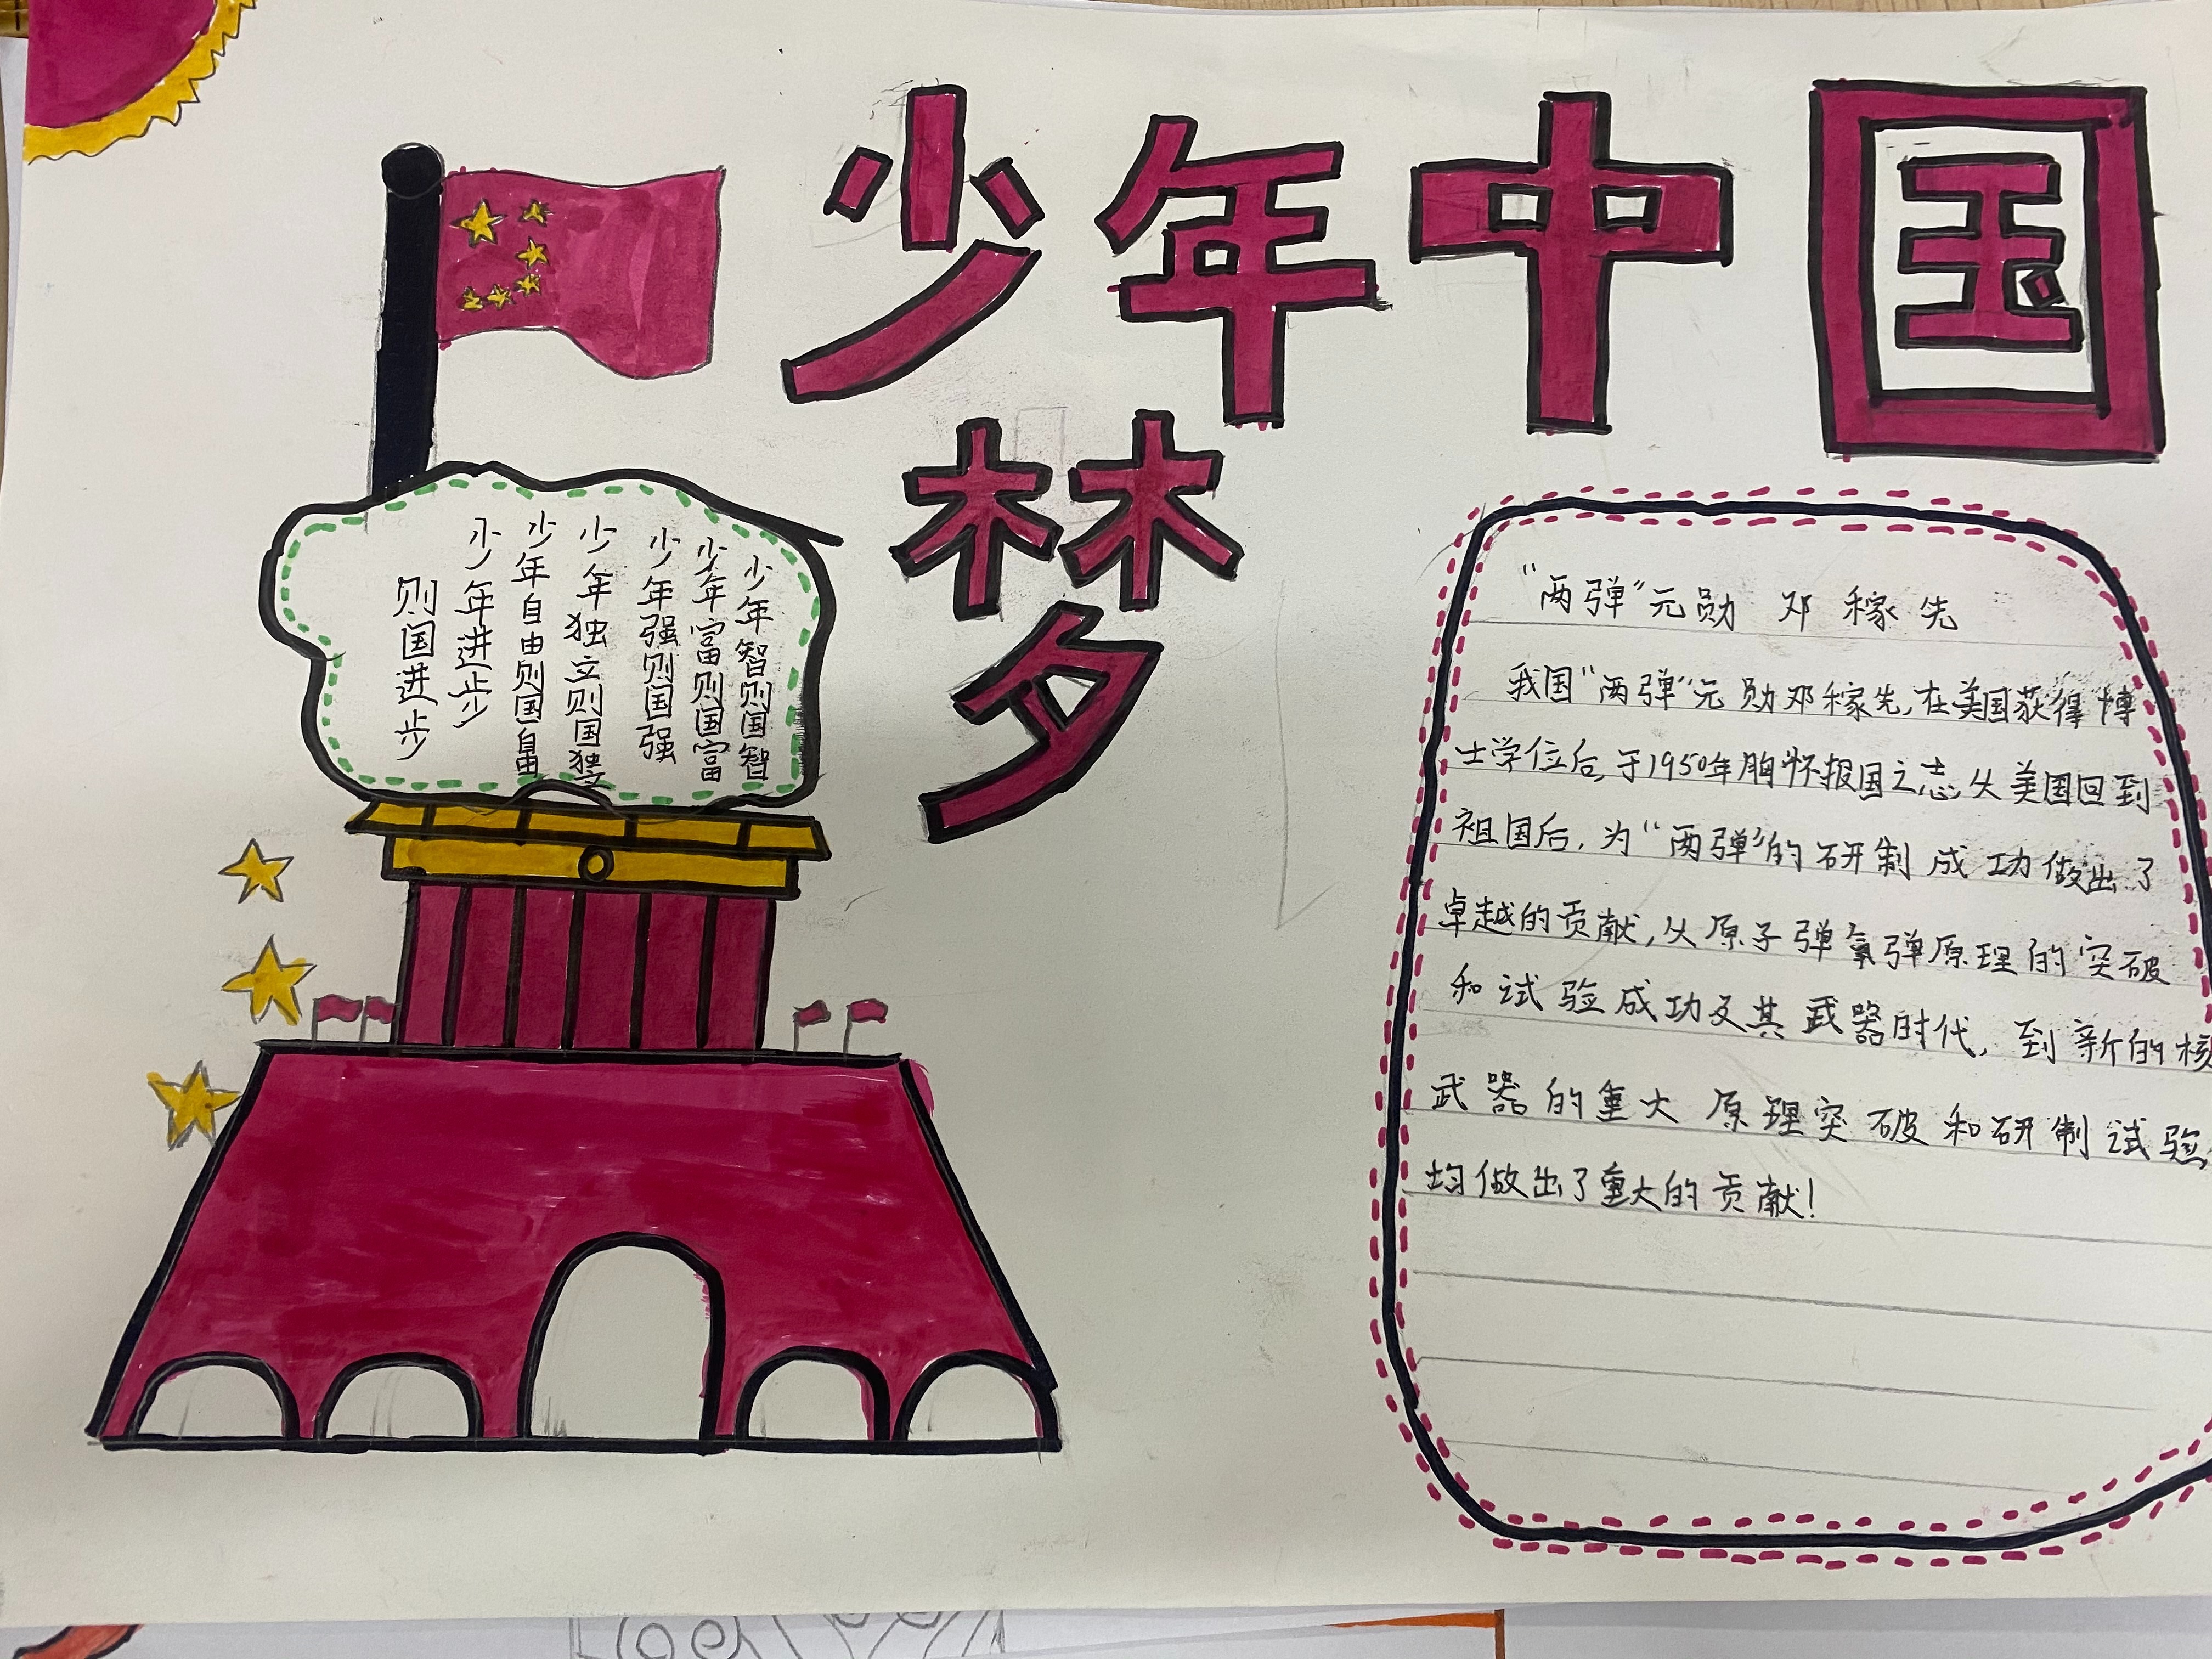 少年中国
梦
少年智则国智
少年富则国富
少年强则国强
少年独立则国独立
少年自由则国自由
少年进步
则国进步
“两弹”元勋 邓稼先
我国“两弹”元勋邓稼先,在美国获得博
士学位后,于1950年胸怀报国之志,从美国回到
祖国后,为“两弹”的研制成功做出了
卓越的贡献,从原子弹氢弹原理的突破
和试验成功及其武器时代,到新的核
武器的重大原理突破和研制试验,
均做出了重大的贡献!